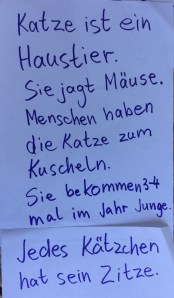 Katze ist ein
Haustier.
Sie jagt Mäuse.
Menschen haben
die Katze zum
Kuscheln.
Sie bekommen 3-4
mal im Jahr Junge.
Jedes Kätzchen
hat sein Zitze.